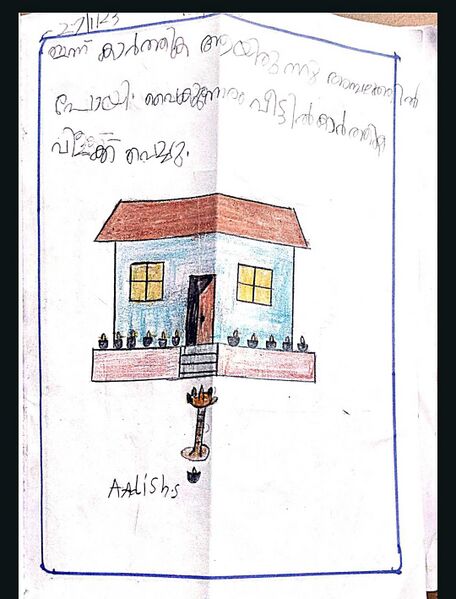 27/11/23
ഇന്ന് കാർത്തിക ആയിരുന്നു അമ്പലത്തിൽ
പോയി. വൈകുന്നേരം വീട്ടിൽ കാർത്തിക
വിളക്ക് വെച്ചു.
AALiSh.S